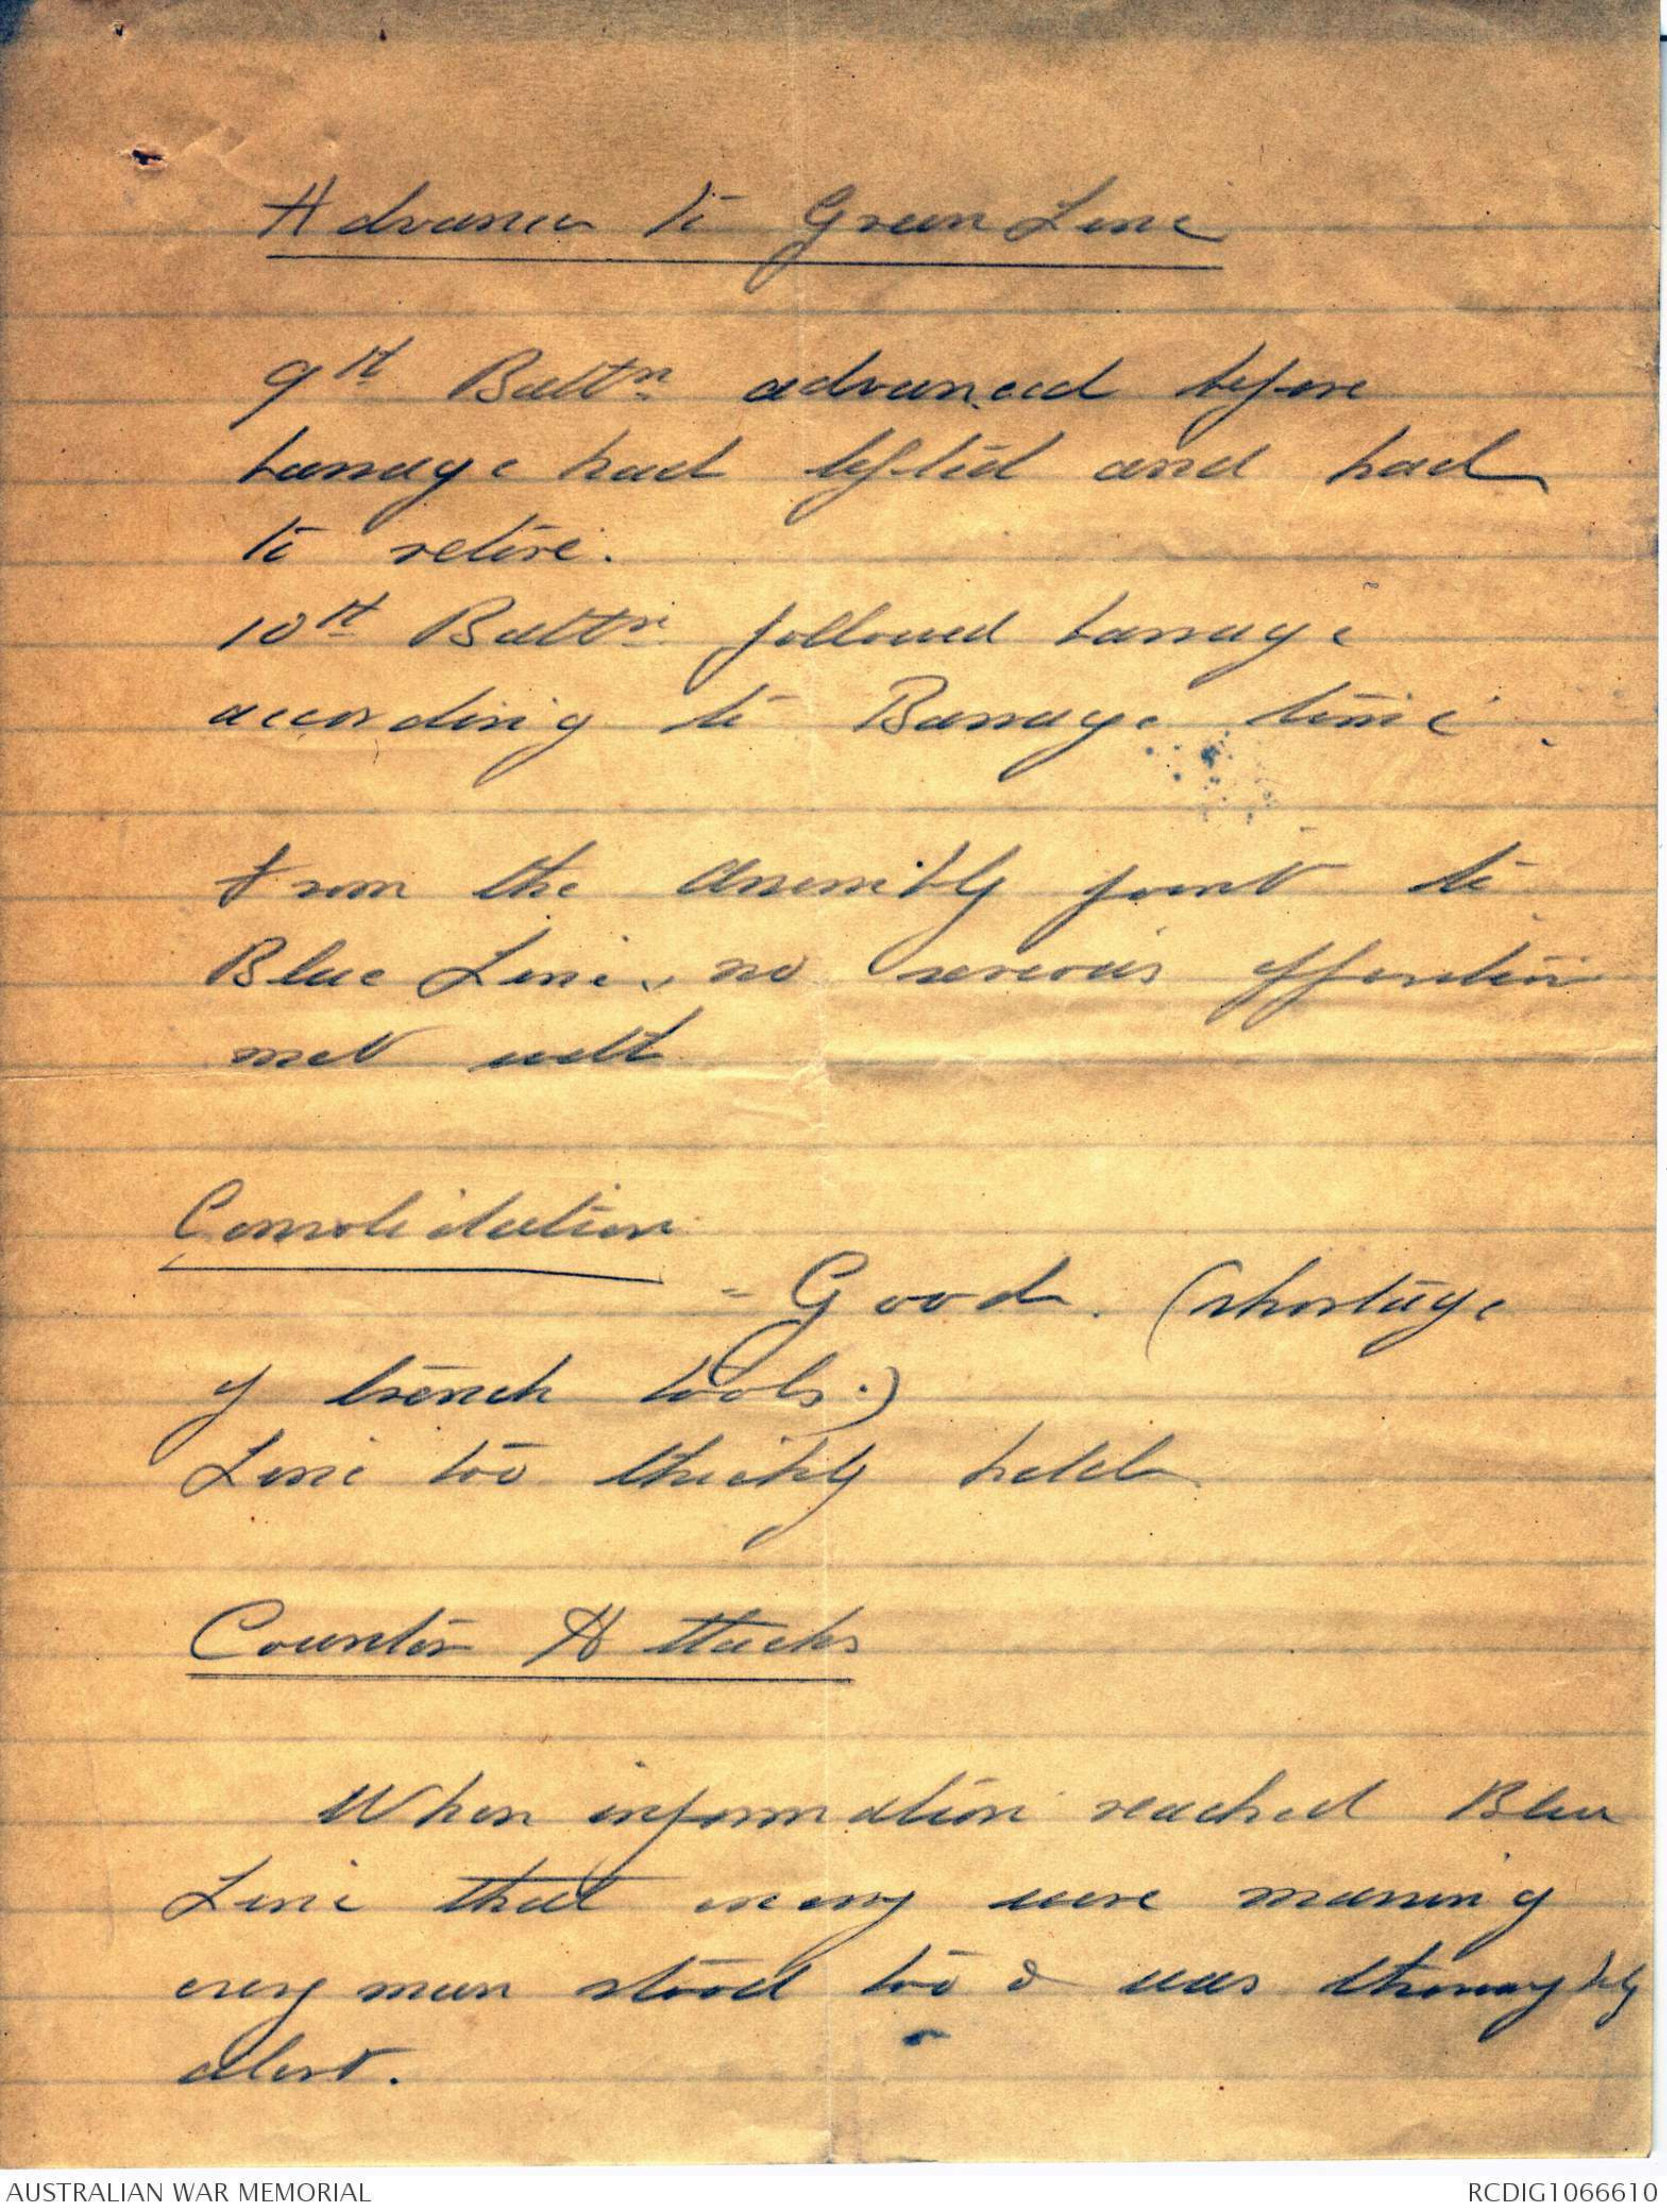 Advance to Green Line
9th Battn advanced before
barrage had lifted and had
to retire.
10th Battn followed barrage
according to Barrage time.
From the Assembly point to
Blue Line, no serious opposition
met with
Consolidation
- Good. (shortage
of trench tools.)
Line too thickly held
Counter Attacks
When information reached Blue
Line that enemy were massing
every man stood too & was thoroughly
alert.
AUSTRALIAN WAR MEMORIAL
RCDIG1066610